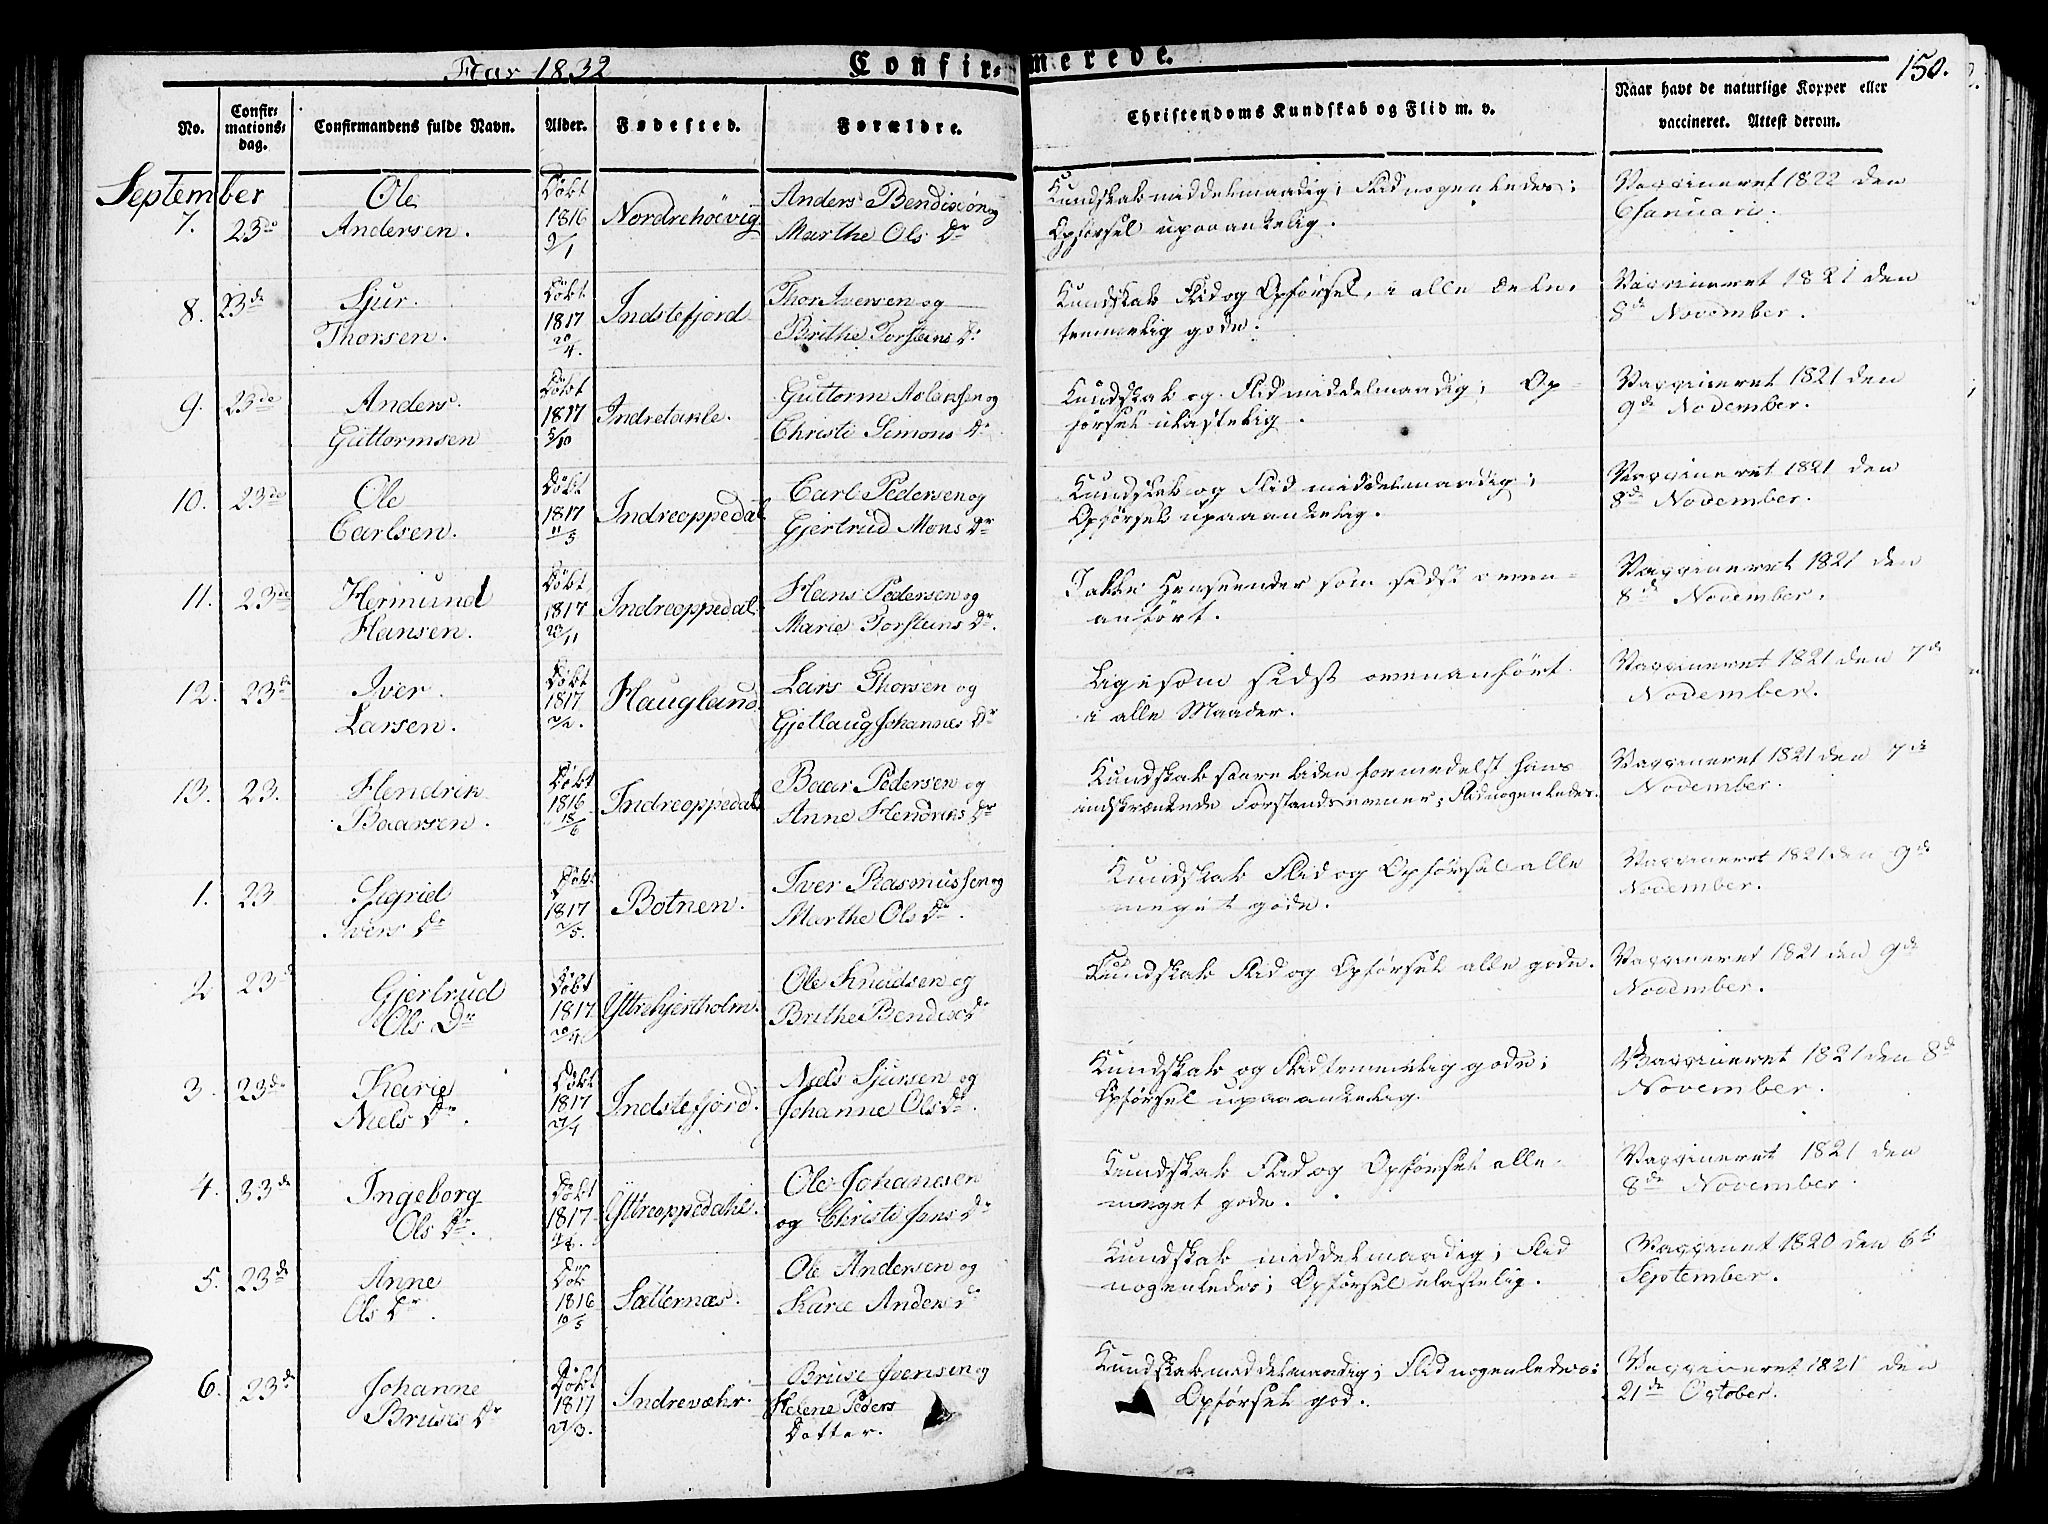 Aar 1832 Confirmerede. 150.
No. Confirmationsdag. Confirmandens fulde Navn. Alder. Fødested. Forældre. Christendoms Kundskab og Flid m. v. Naar havt de naturlige Kopper eller vaccineret. Attest derom.
September
7. 23de Ole Andersen. Døbt 1816 9/1 Nordrehøevig Anders Bendixøn og Marthe Ols Dr Kundskab middelmaadig; Flid nogenledes; Opførsel upaaankelig. Vaxxineret 1822 den Januarii.
8. 23de Sjur Thorsen. Døbt 1817 20/4. Indstefjord Thor Iversen og Brithe Torsteins Dr Kundskab Flid og Opførsel, i alle Dele, temmelig gode. Vaxxineret 1821 den 8de November.
9. 23de Anders Guttormsen Døbt 1817 5/10 Indretakle. Guttorm Aslaksen og Christi Simons Dr Kundskab og Flid middelmaadig; Opførsel ulastelig. Vaxxineret 1821 den 9de November.
10. 23de Ole Carlsen. Døbt 1817 11/5 Indreoppedal Carl Pedersen og Gjertrud Mons Dr Kundskab og Flid middelmaadig; Opførsel upaaankelig. Vaxxineret 1821 den 8de November.
11. 23de Hermund Hansen. Døbt 1817 23/11 Indreoppedal Hans Pedersen og Marie Torsteins Dr. I alle Henseender som sidst ovenanført. Vaxxineret 1821 den 8de November.
12. 23de Iver Larsen. Døbt 1817 Haugland. Lars Thorsen og Gjetlaug Johannes Dr Ligesom sidst ovenanført i alle Maader. Vaxxineret 1821 den 7de November.
13. 23. Hendrik Baarsen. Døbt 1816 18/6 Indreoppedal Baar Pedersen og Anne Hendriks Dr Kundskab saare liden formedelst hans indskrænkede Forstandsevner; Flid nogenledes. Vaxxineret 1821 den 7de November.
1. 23 Sigrid Ivers Dr Døbt 1817 /5. Botnen. Iver Rasmussen og Marthe Ols Dr. Kundskab Flid og Opførsel alle meget gode. Vaxxineret 1821 den 9de November.
2 23d Gjertrud Ols Dr Døbt 1817. 20/4 Yttrehjertholm. Ole Knudsen og Brithe Bendixs Dr Kundskab Flid og Opførsel alle gode. Vaxxineret 1821 den 9de November.
3. 23de Karie Niels Dr. Døbt 1817 27/4 Indstefjord. Niels Sjursen og Johanne Ols Dr. Kundskab og Flid temmelig gode; Opførsel upaaankelig. Vaxxineret 1821 den 8de November.
4. 33de Ingeborg Ols Dr. Døbt 1817 Yttreoppedahl. Ole Johanesen og Christi Jens Dr Kundskab Flid og Opførsel alle meget gode. Vaxxineret 1821 den 8de November.
5. 23de Anne Ols Dr. Døb 1816 10/5 Sætternæs. Ole Andersen og Karie Anders Dr Kundskab middelmaadig; Flid nogenledes; Opførsel ulastelig. Vaxxinet 1820 den 6te September.
6. 23de Johanne Bruses Dr Døbt 1817 27/3. Indrevæhr. Bruse Jensen og Helene Peders Dotter. Kundskab middelmaadig; Flid nogenledes; Opførsel god. Vaxxineret 1821 den 21de October.